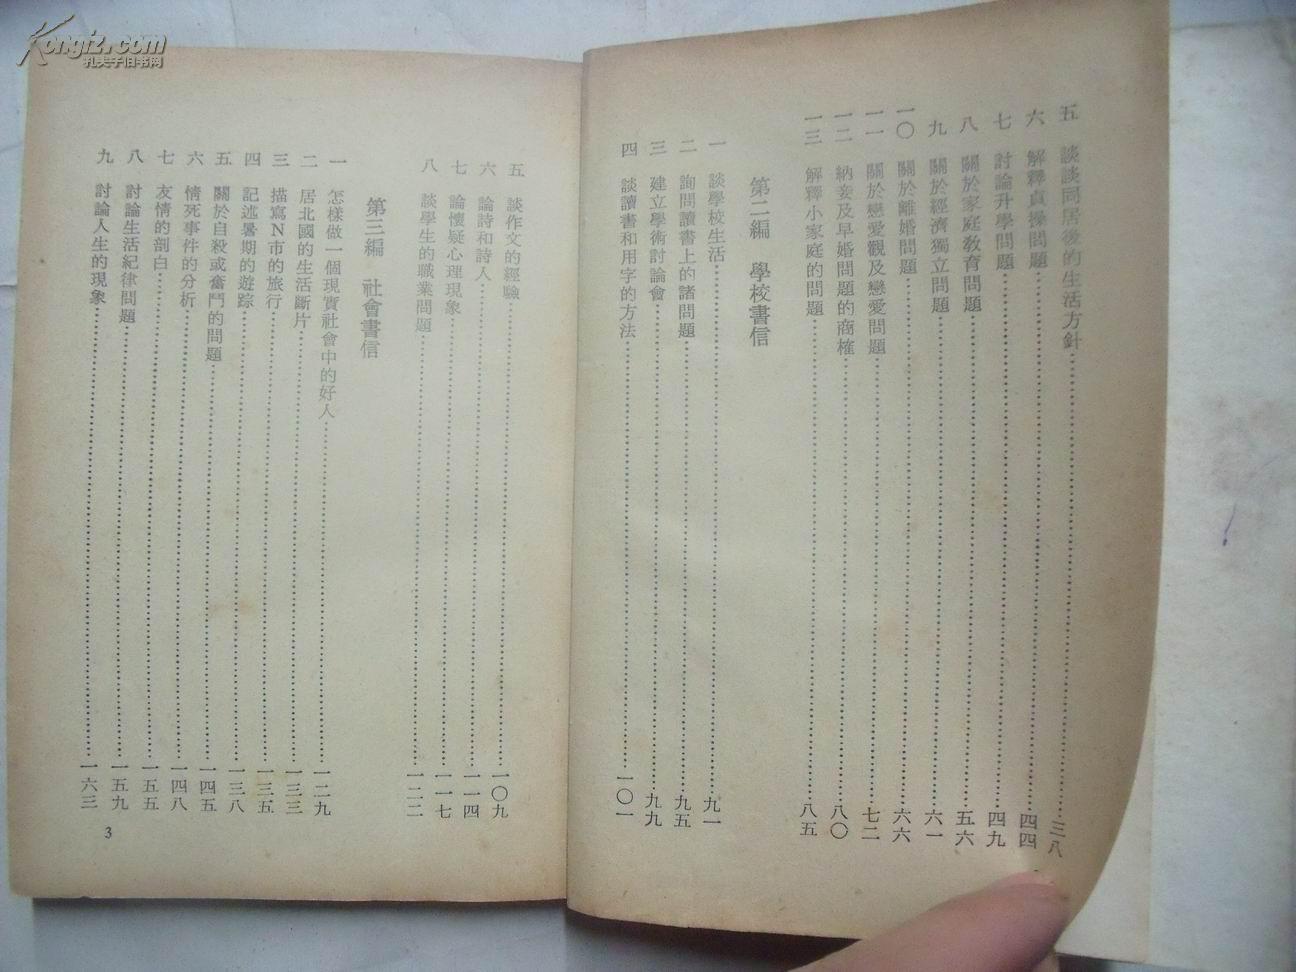 Kongfz.com
孔夫子旧书网
五 談談同居後的生活方針 三八
六 解釋貞操問題 四四
七 討論升學問題 四九
八 關於家庭教育問題 五六
九 關於經濟獨立問題 六一
一〇 關於離婚問題 六六
一一 關於戀愛觀及戀愛問題 七二
一二 納妾及早婚問題的商榷 八〇
一三 解釋小家庭的問題 八五
第二編 學校書信
一 談學校生活 九一
二 詢問讀書上的諸問題 九五
三 建立學術討論會 九九
四 談讀書和用字的方法 一〇一
五 談作文的經驗 一〇九
六 論詩和詩人 一一四
七 論懷疑心理現象 一一七
八 談學生的職業問題 一二二
第三編 社會書信
一 怎樣做一個現實社會中的好人 一二九
二 居北國的生活斷片 一三三
三 描寫N市的旅行 一三五
四 記述暑期的遊踪 一三八
五 關於自殺或奮鬥的問題 一四五
六 情死事件的分析 一四八
七 友情的剖白 一五五
八 討論生活紀律問題 一五九
九 討論人生的現象 一六三
3